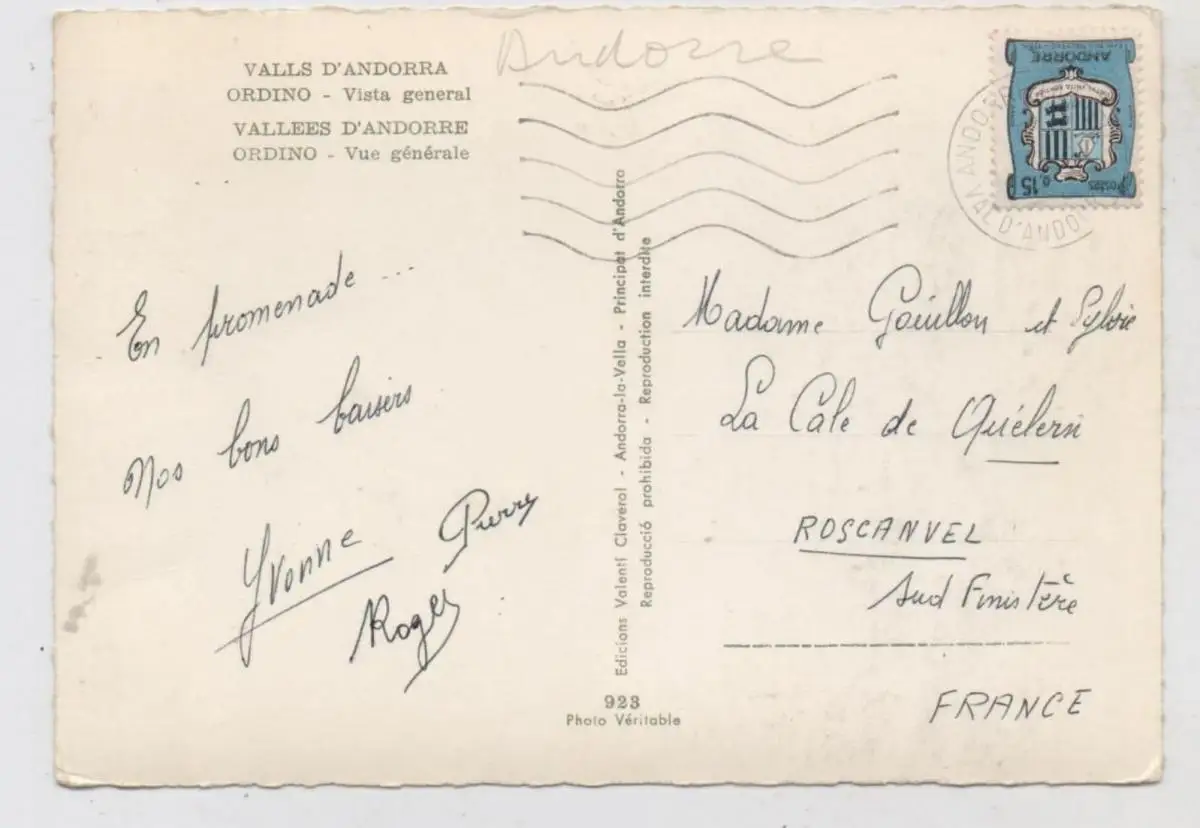 Andorre
VALLS D'ANDORRA
ORDINO - Vista general
VALLEES D'ANDORRE
ORDINO - Vue générale
En promenade ...
Nos bons baisers
Yvonne Pierre
Roger
Edicions Valentí Claverol - Andorra-la-Vella - Principat d'Andorra
Reproducció prohibida - Reproduction interdite
923
Photo Véritable
ANDORRE
0,15
Postes
VAL D'ANDO
Madame Goüillon et Sylvie
La Cale de Quélern
ROSCANVEL
Sud Finistère
FRANCE